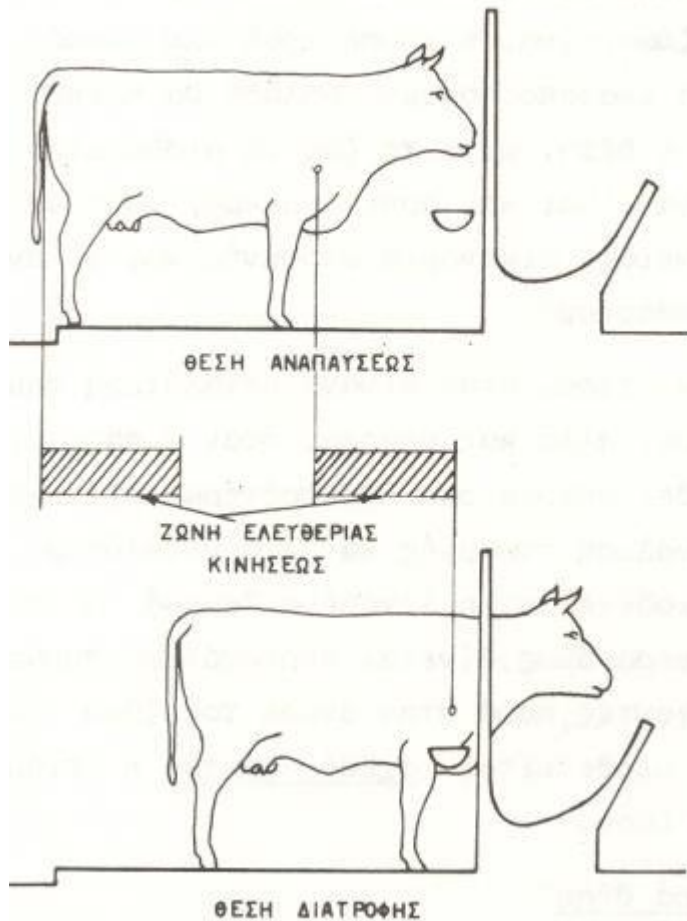 ΘΕΣΗ ΑΝΑΠΑΥΣΕΩΣ
ΖΩΝΗ ΕΛΕΥΘΕΡΙΑΣ
ΚΙΝΗΣΕΩΣ
ΘΕΣΗ ΔΙΑΤΡΟΦΗΣ